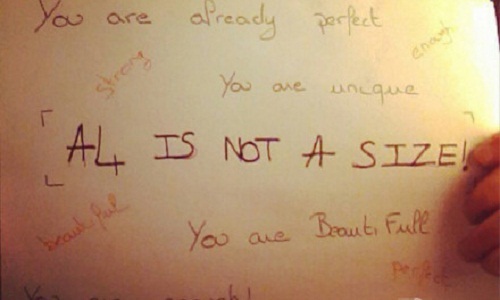 You are already perfect
strong
enough
You are unique
A4 IS NOT A SIZE!
beautiful
You are BeautiFull
Perfect
You are enough!